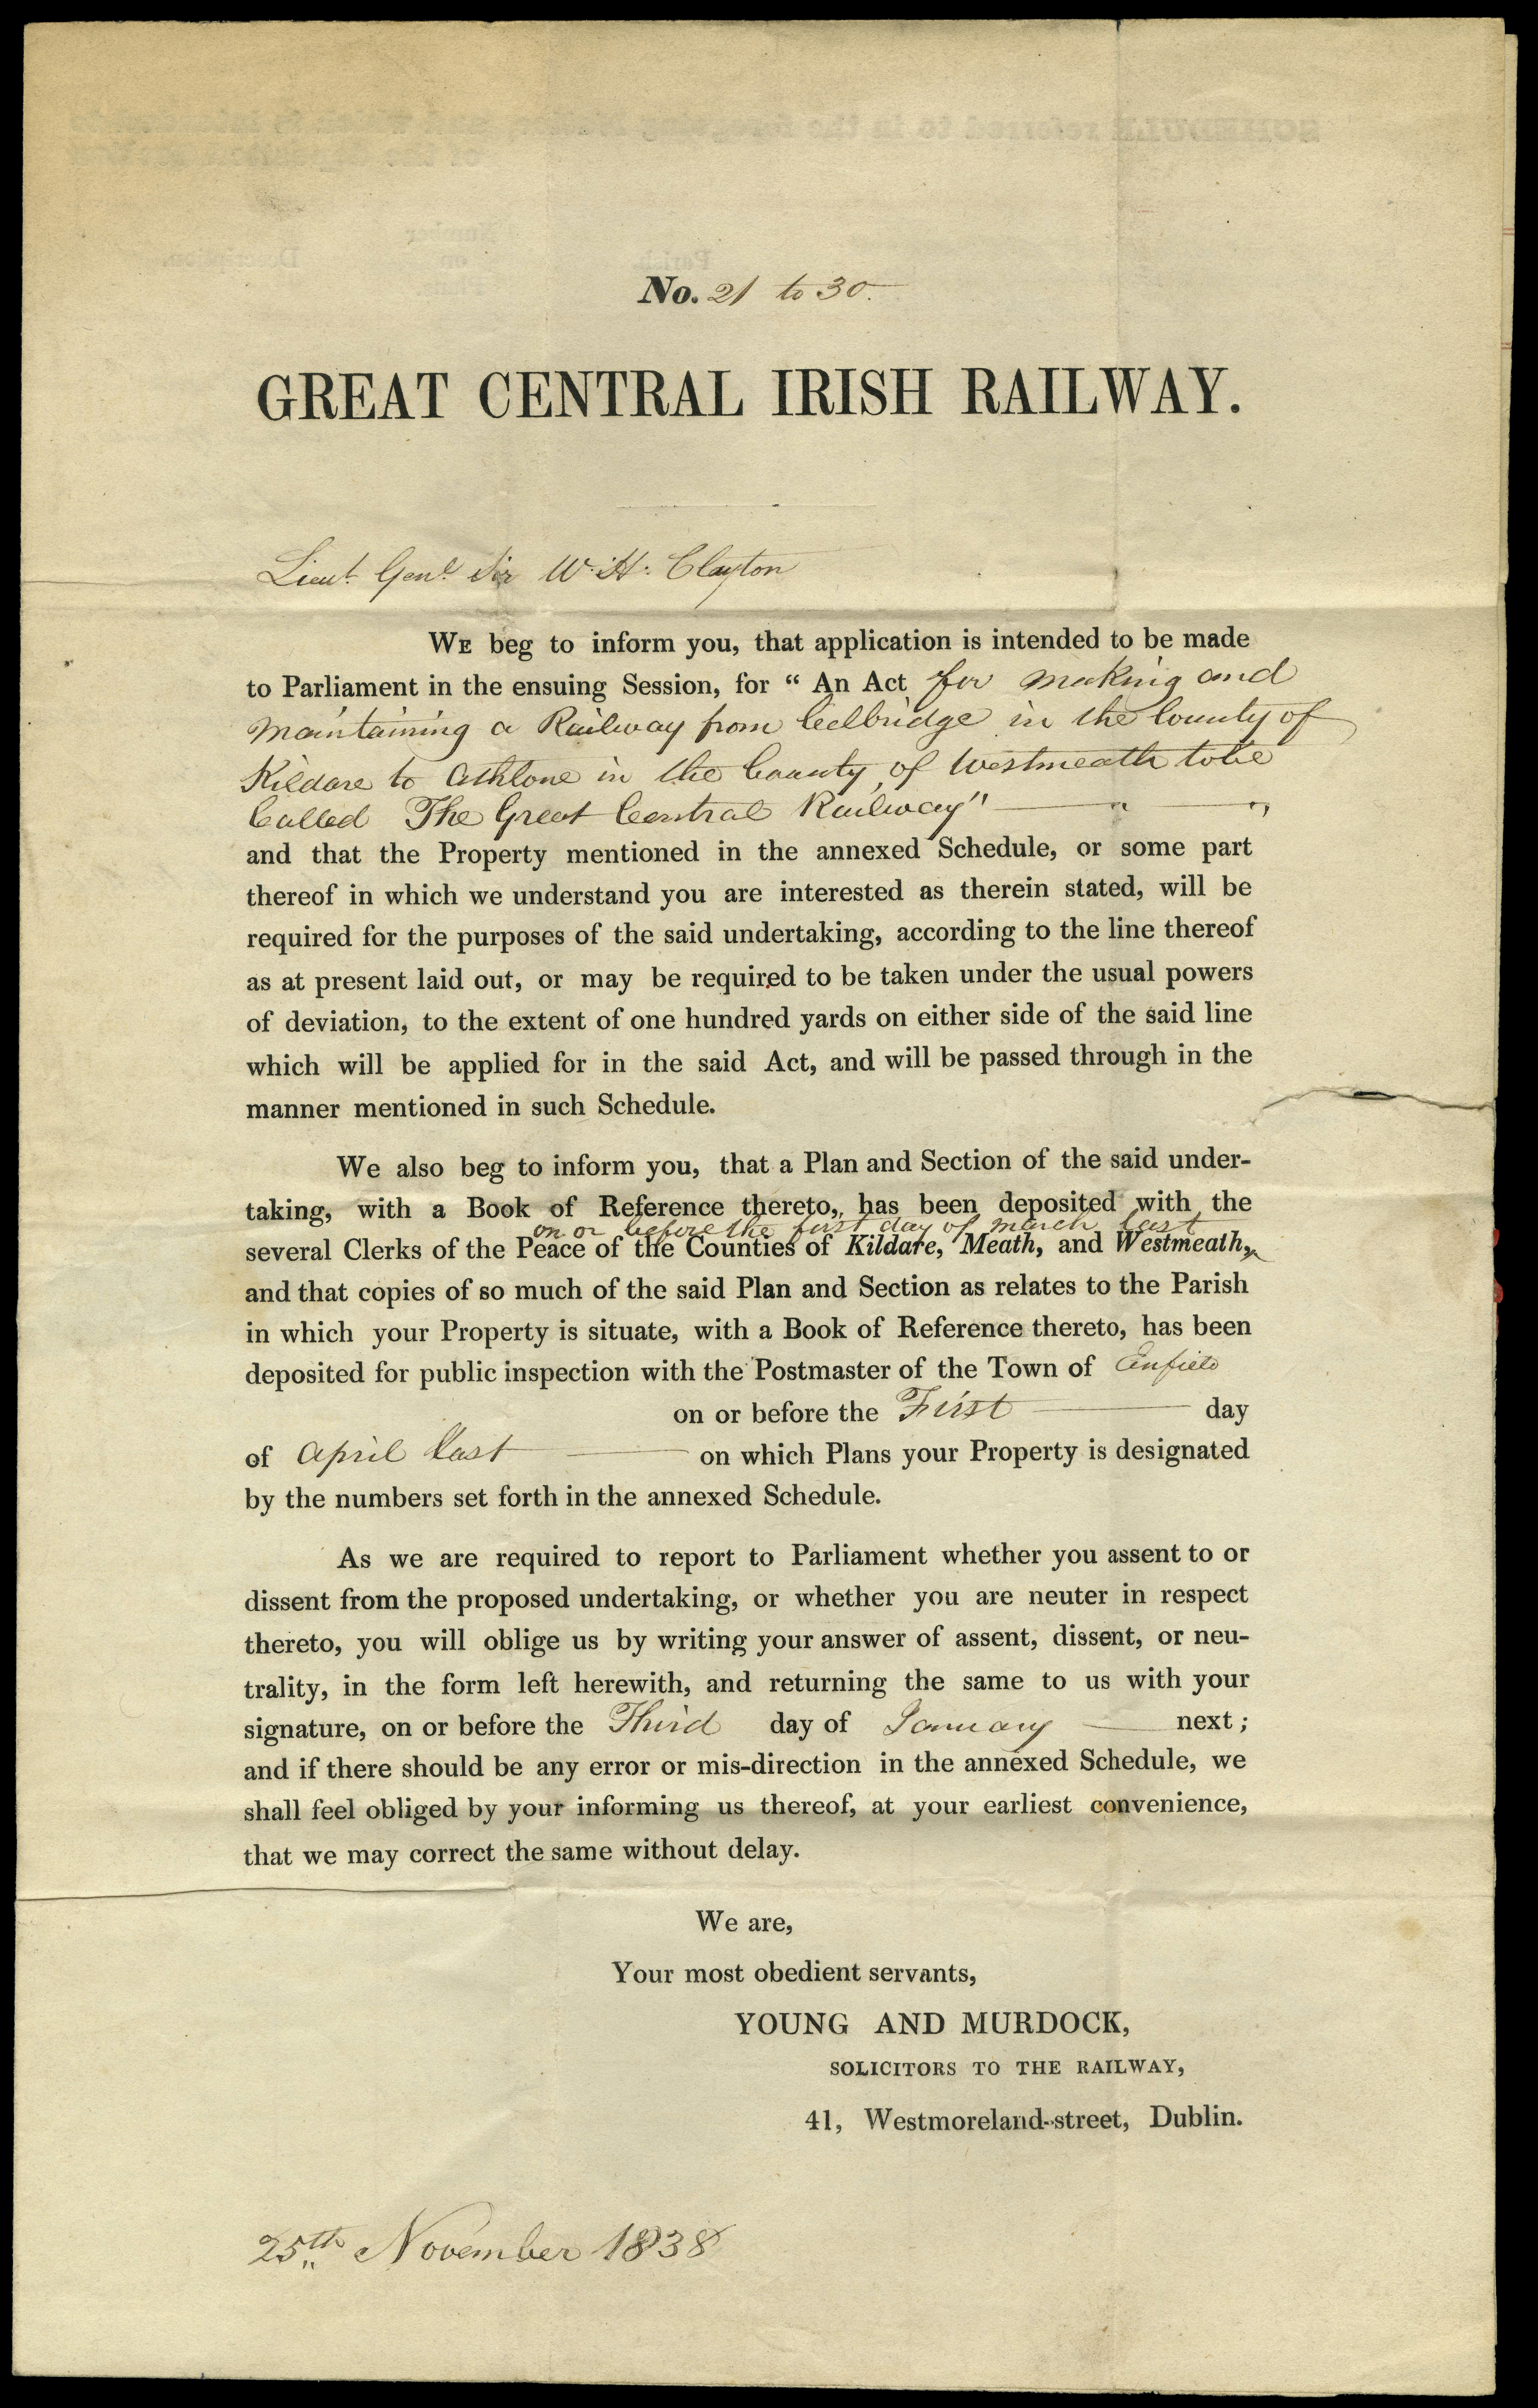 No. 21 to 30.
GREAT CENTRAL IRISH RAILWAY.
Lieut. Genl. Sir W. H. Clayton
WE beg to inform you, that application is intended to be made
to Parliament in the ensuing Session, for “ An Act for making and
maintaining a Railway from Celbridge in the County of
Kildare to Athlone in the County of Westmeath to be
Called The Great Central Railway"
and that the Property mentioned in the annexed Schedule, or some part
thereof in which we understand you are interested as therein stated, will be
required for the purposes of the said undertaking, according to the line thereof
as at present laid out, or may be required to be taken under the usual powers
of deviation, to the extent of one hundred yards on either side of the said line
which will be applied for in the said Act, and will be passed through in the
manner mentioned in such Schedule.
We also beg to inform you, that a Plan and Section of the said under-
taking, with a Book of Reference thereto, has been deposited with the
on or before the first day of March last
several Clerks of the Peace of the Counties of Kildare, Meath, and Westmeath,
and that copies of so much of the said Plan and Section as relates to the Parish
in which your Property is situate, with a Book of Reference thereto, has been
deposited for public inspection with the Postmaster of the Town of Enfield
on or before the First day
of April last on which Plans your Property is designated
by the numbers set forth in the annexed Schedule.
As we are required to report to Parliament whether you assent to or
dissent from the proposed undertaking, or whether you are neuter in respect
thereto, you will oblige us by writing your answer of assent, dissent, or neu-
trality, in the form left herewith, and returning the same to us with your
signature, on or before the Third day of January next ;
and if there should be any error or mis-direction in the annexed Schedule, we
shall feel obliged by your informing us thereof, at your earliest convenience,
that we may correct the same without delay.
We are,
Your most obedient servants,
YOUNG AND MURDOCK,
SOLICITORS TO THE RAILWAY,
41, Westmoreland-street, Dublin.
25th November 1838